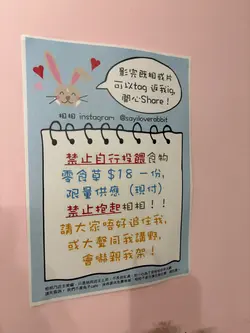 影完既相或片
可以tag 返我ig,
開心Share！
相相 instagram @sayiloverabbit
禁止自行投餵食物
零食草 $18 一份,
限量供應 (現付)
禁止抱起相相！！
請大家唔好追住我,
或大聲同我講野,
會嚇親我架！